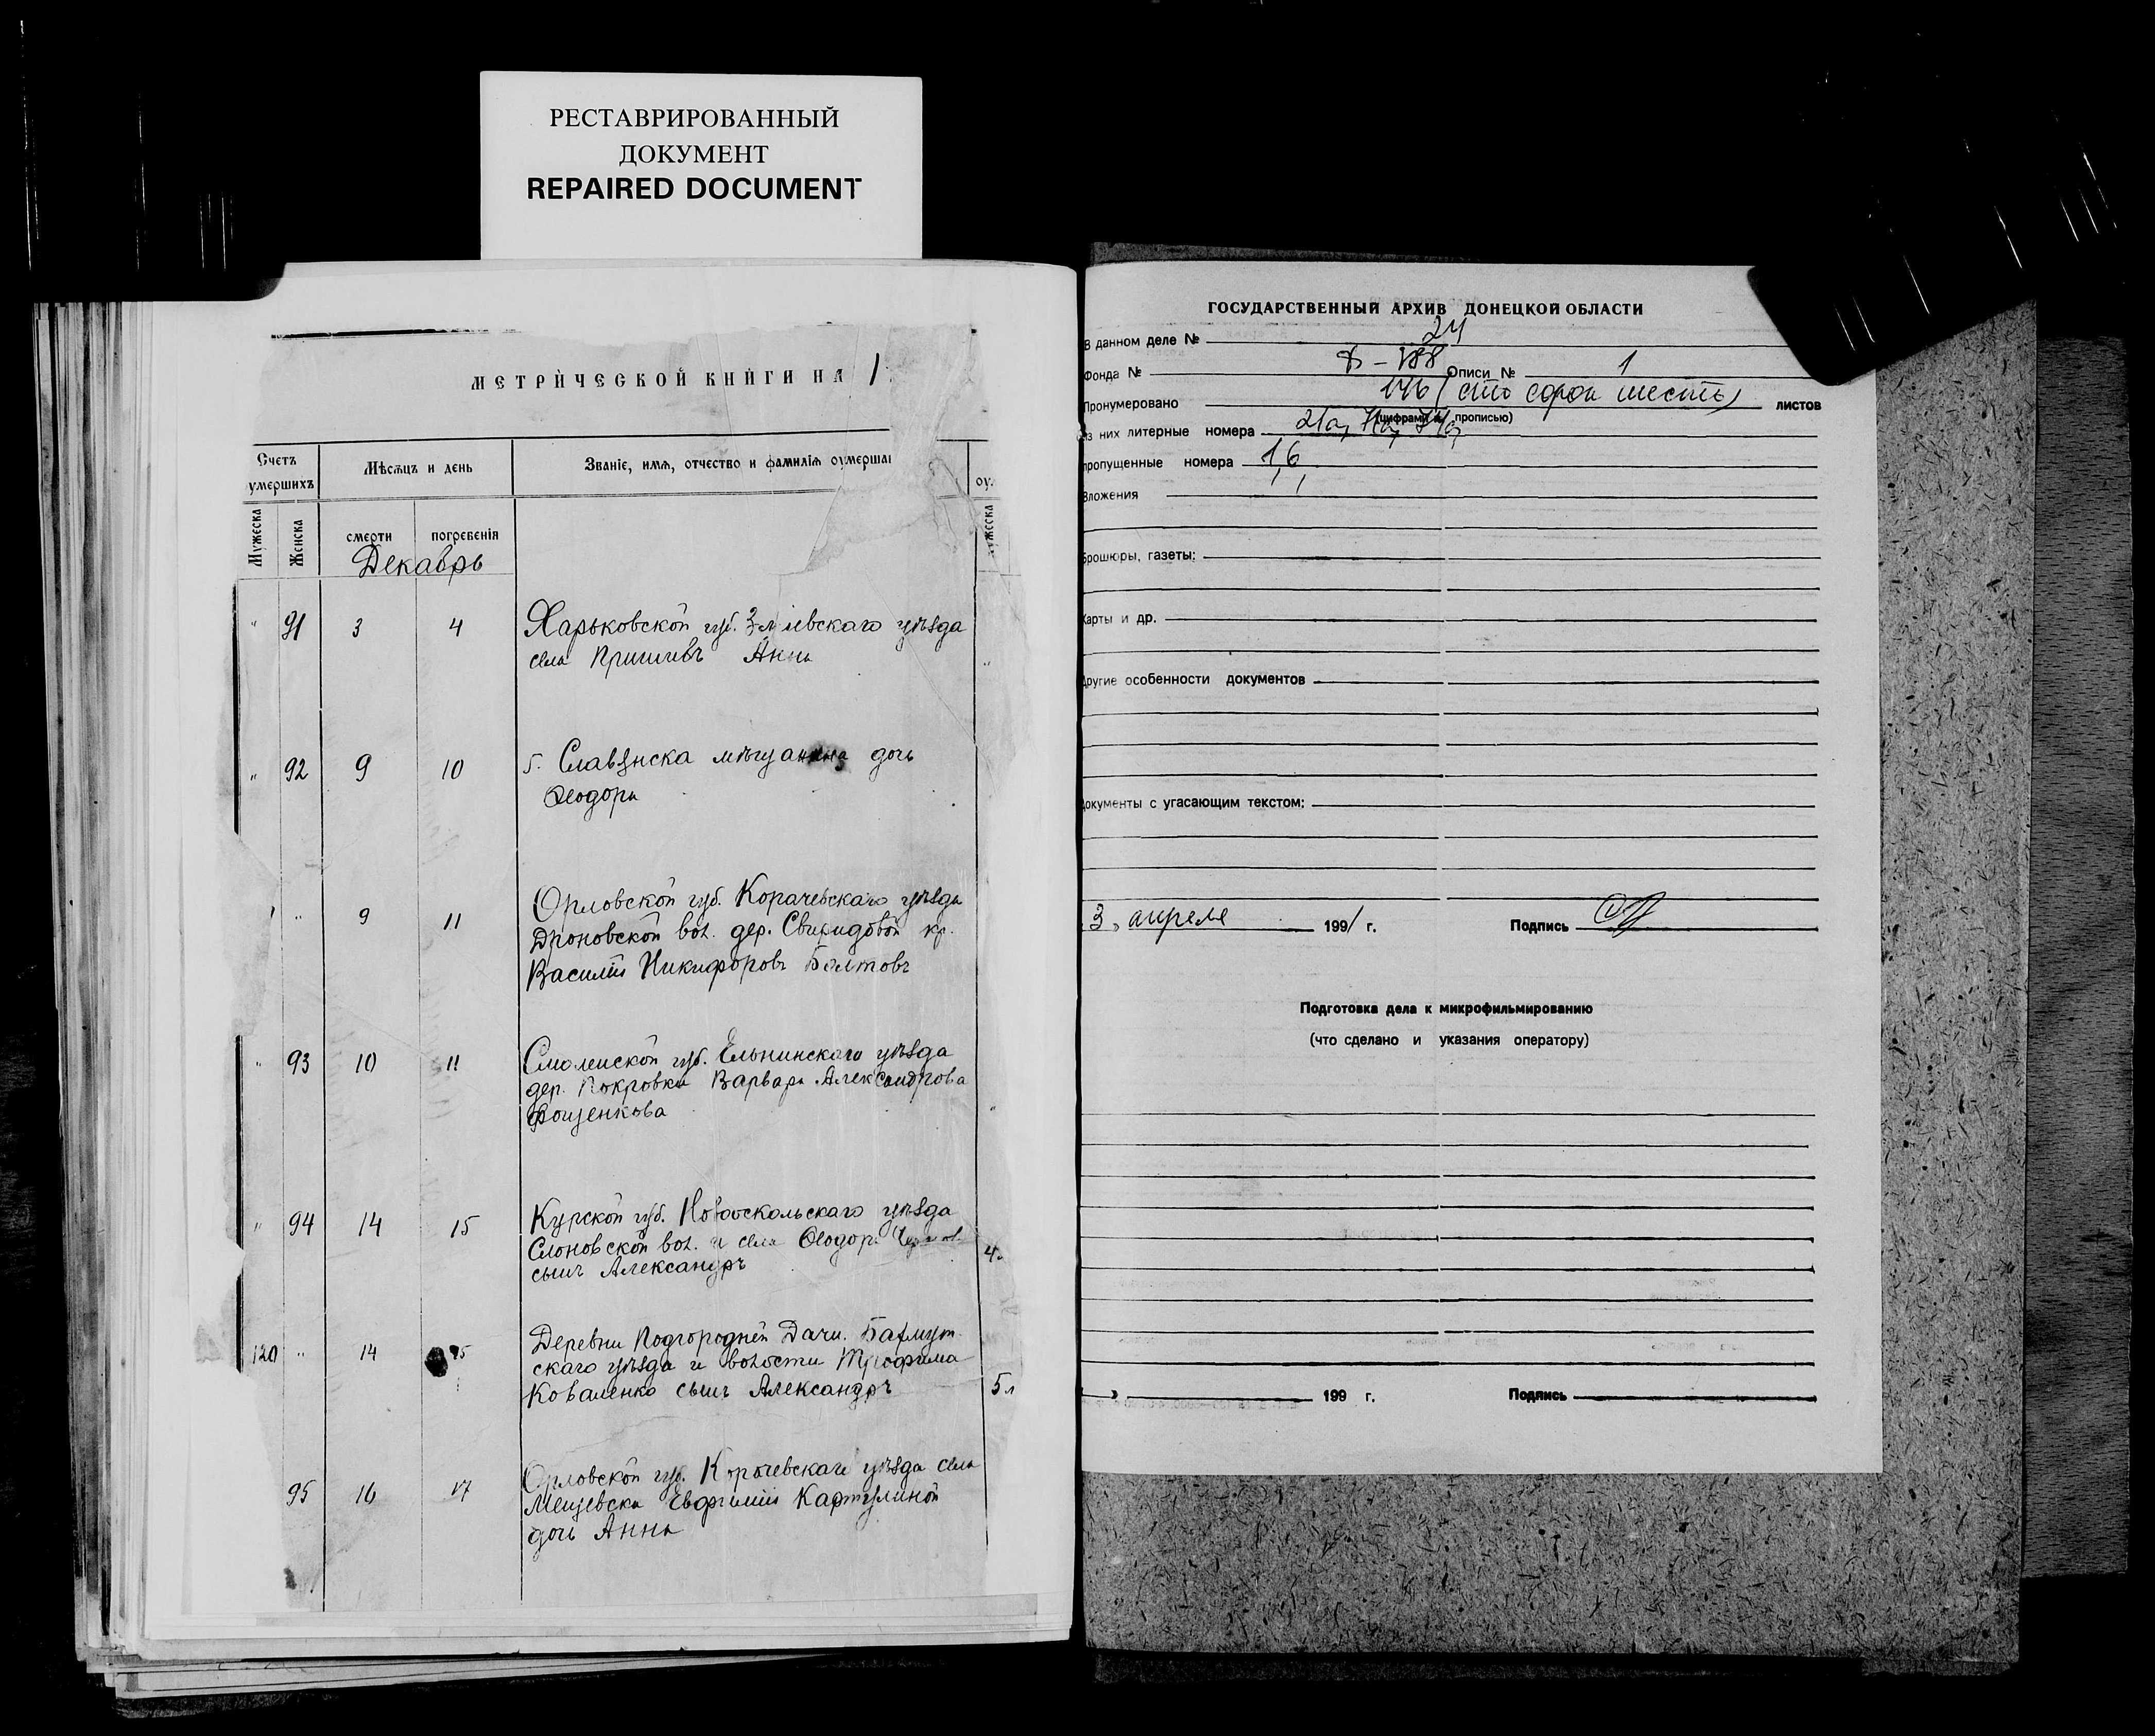 РЕСТАВРИРОВАННЫЙ
ДОКУМЕНТ
REPAIRED DOCUMENT
МЕТРИЧЕСКОЙ КНИГИ НА 1
Счетъ умершихъ
Мѣсяцъ и день
Званіе, имя, отчество и фамилія оумерша
оу
Мужеска
Женска
смерти
погребенія
Декабрь
" 91 3 4 Харьковской губ. Зміевскаго уѣзда
села Анна
" 92 9 10 г. Славянска мѣщанина дочь
Ѳеодора
" 9 11 Орловской губ. Корачевскаго уѣзда
Дроновской вол. дер. Свиридовой кр.
Василій Никифоровъ Болтовъ
" 93 10 11 Смоленской губ. Ельнинскаго уѣзда
дер. Покровки Варвара Александрова
Фощенкова
" 94 14 15 Курской губ. Новооскольскаго уѣзда
Слоновской вол. и села Ѳеодора
сынъ Александръ
4
120 " 14 15 Деревни Подгородней Дачи. Бахмут
скаго уѣзда и волости Трофима
Коваленко сынъ Александръ
5 л
95 16 17 Орловской губ. Корачевскаго уѣзда села
Евфиміи
дочь Анна
ГОСУДАРСТВЕННЫЙ АРХИВ ДОНЕЦКОЙ ОБЛАСТИ
В данном деле № 24
Фонда № Описи № 1
Пронумеровано 146 (сто сорок шесть) листов
(цифрами и прописью)
из них литерные номера 21а,
пропущенные номера 1, 6,
Вложения
Брошюры, газеты:
Карты и др.
Другие особенности документов
Документы с угасающим текстом:
3 " апреля 1991 г. Подпись
Подготовка дела к микрофильмированию
(что сделано и указания оператору)
" 199 г. Подпись